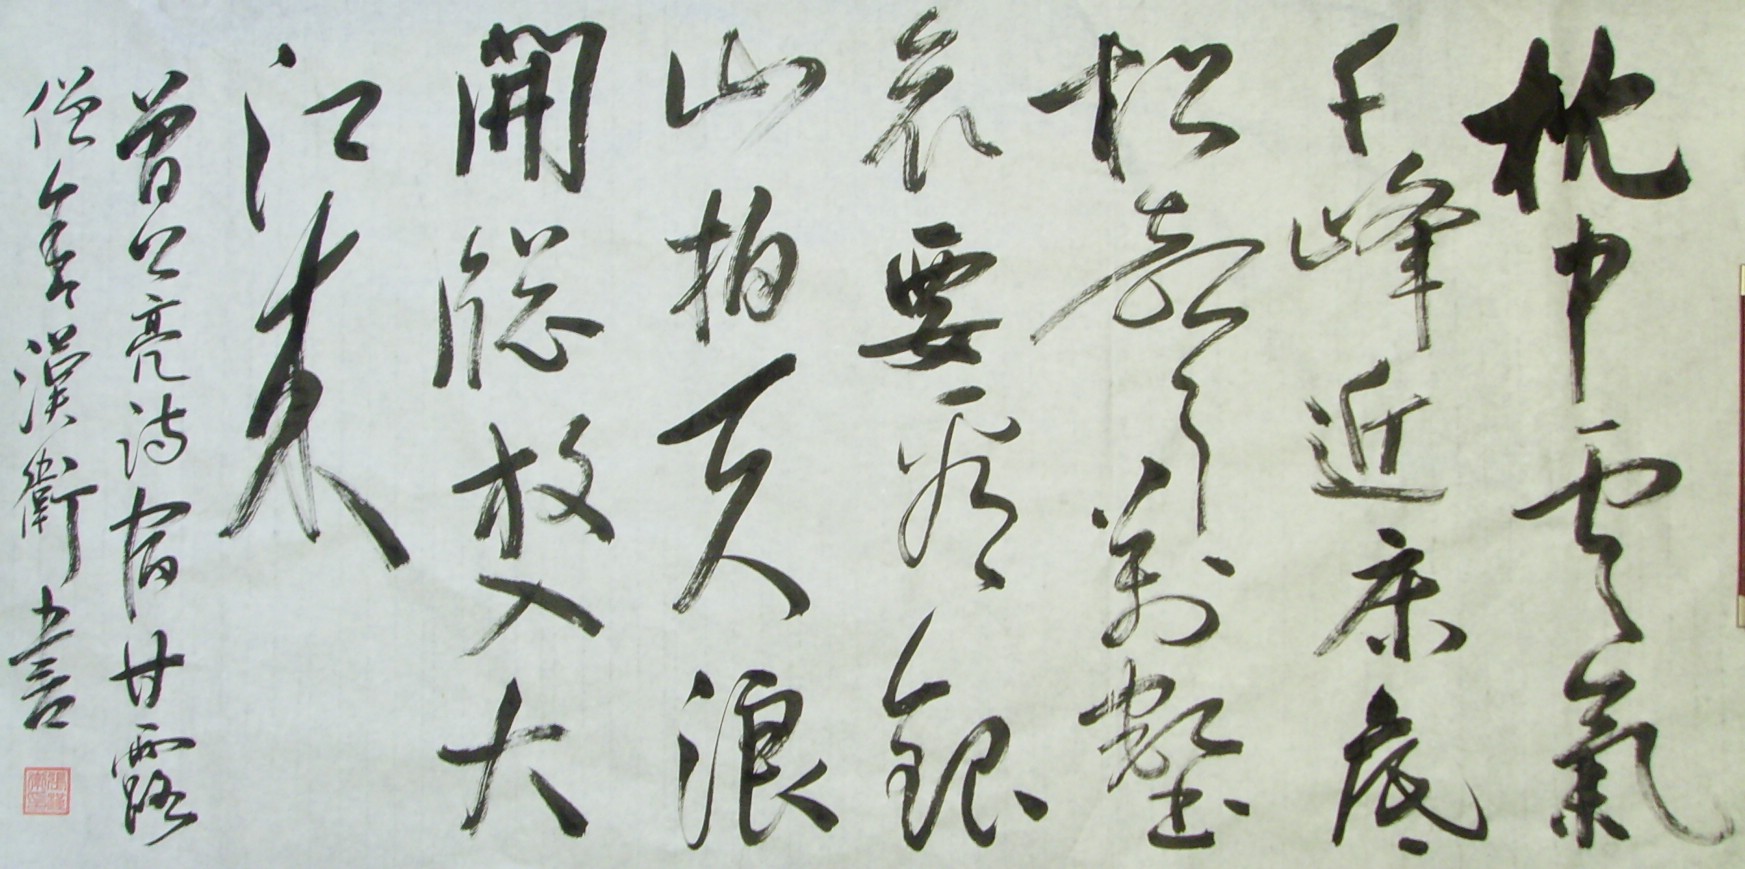 枕中雲氣
千峰近床底
松聲萬壑
哀要看銀
山拍天浪
開牕放入大
江來
曾公亮詩宿甘露
僧舍漢衛書